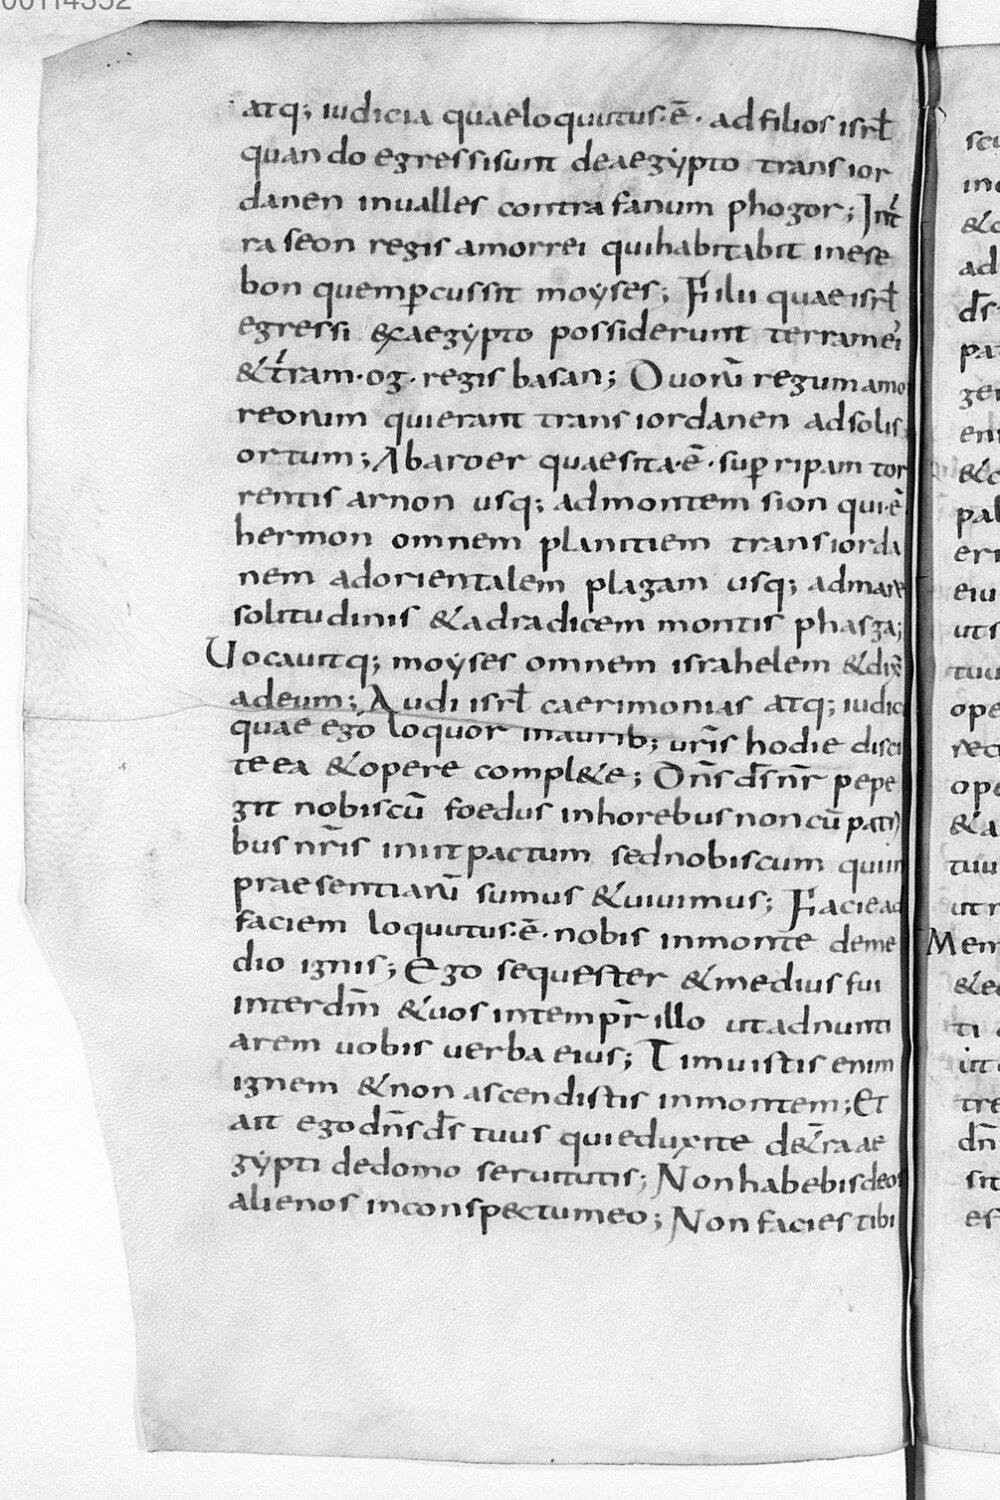 atq; iudicia quaeloquutus·ē· adfilios isrł
quando egressisunt deaegẏpto trans ior
danen inualles contra fanum phogor; Int
ra seon regis amorrei quihabitabit inese
bon quempcussit moẏses; Filii quae isrł
egressi &caegẏpto possiderunt terram ei
&tram·og·regis basan; Duorū regum amo
reorum quierant trans iordanen adsolis
ortum; Abaroer quaesita·ē·sup ripam tor
rentis arnon usq; admontem sion qui·ē
hermon omnem planitiem trans iorda
nem adorientalem plagam usq; admare
solitudinis &adradicem montis phasga;
Uocauitq; moẏses omnem israhelem &dix̄
adeum; Audi isrł caerimonias atq; iudic
quae ego loquor inaurib; ur̄is hodie disci
te ea &opere compl&e; Dn̄s d̄s nr̄ pepe
git nobiscū foedus inhorebus non cū patri
bus nr̄is iniit pactum sednobiscum quiin
praesentiarū sumus &uiuimus; Facie ad
faciem loquutus·ē·nobis inmonte deme
dio ignis; Ego sequester &medius fui
interdm̄ &uos intempr̄ illo ut adnunti
arem uobis uerba eius; Timuistis enim
ignem &non ascendistis inmontem; Et
ait ego dn̄s d̄s tuus quieduxite de&ra ae
gẏpti dedomo seruitutis; Non habebis deos
alienos inconspectumeo; Non facies tibi